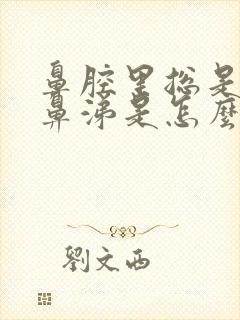 鼻腔里總是
鼻涕是怎麼
劉文西